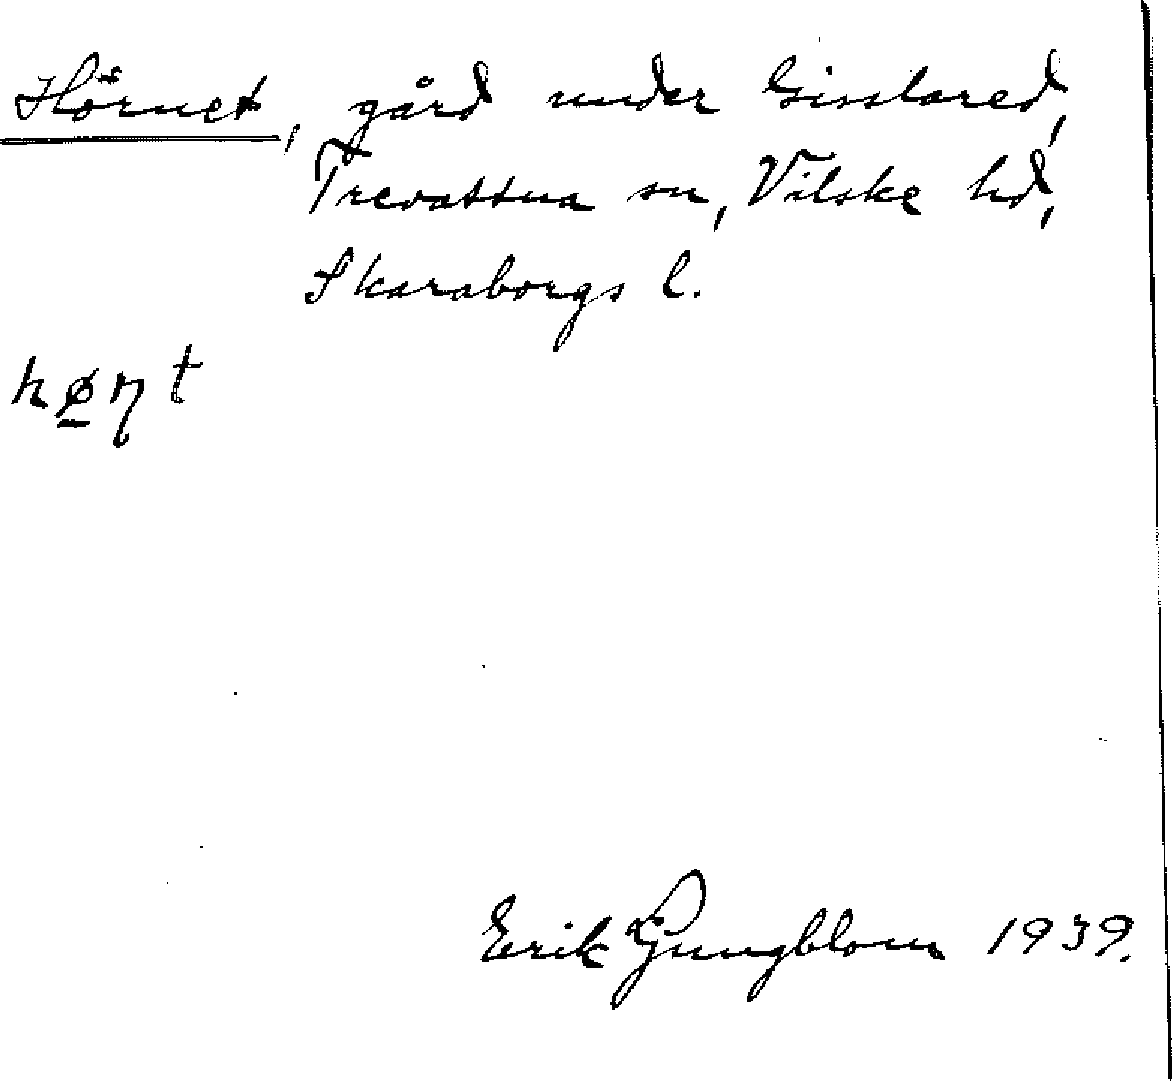 Hörnet, gård under Gisslared,
Trevattna sn, Vilske hd,
Skaraborgs l.
hø̱ɳt
Erik Ljungblom 1939.